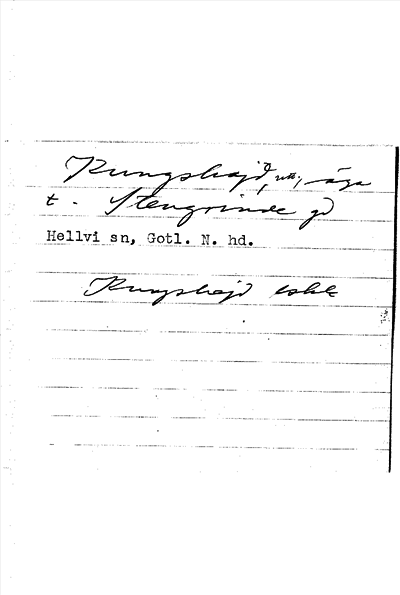 Kungshajd, utt., äga
t. Stengrinde gd
Hellvi sn, Gotl. N. hd.
Kungshajd